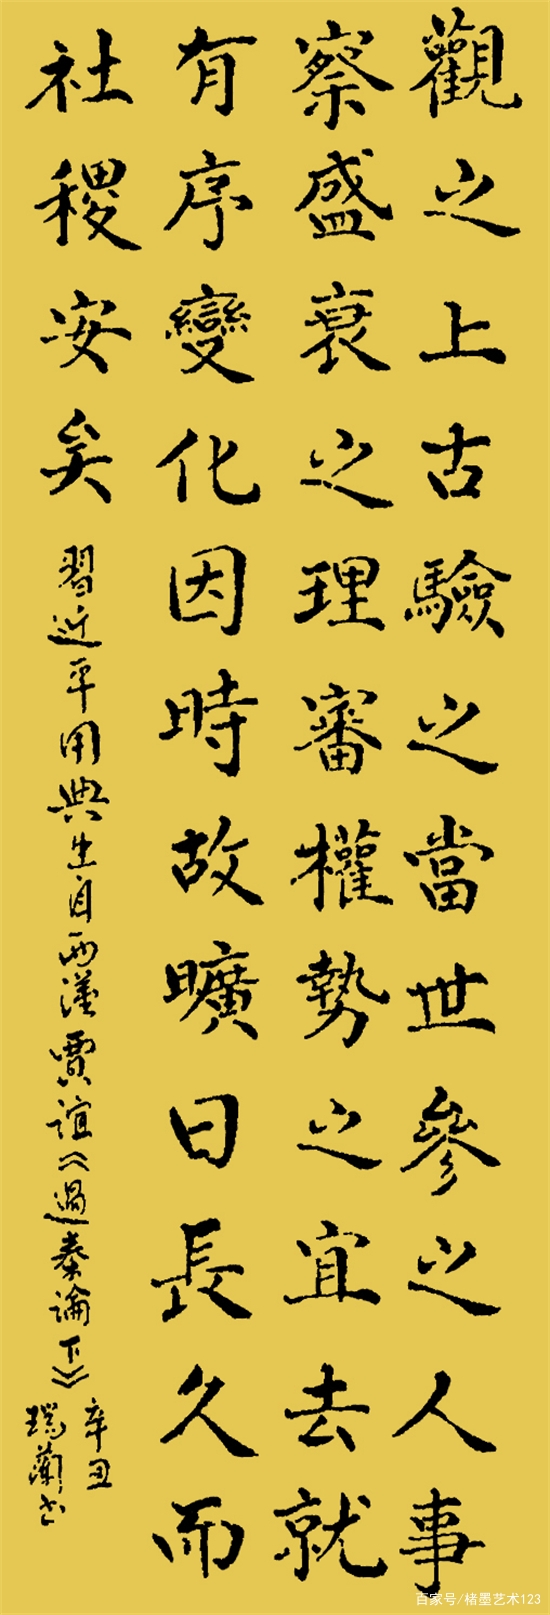 觀之上古驗之當世參之人事
察盛衰之理審權勢之宜去就
有序變化因時故曠日長久而
社稷安矣
習近平用典生自西漢賈誼《過秦論下》
辛丑
瑞蘭书
百家号/楮墨艺术123